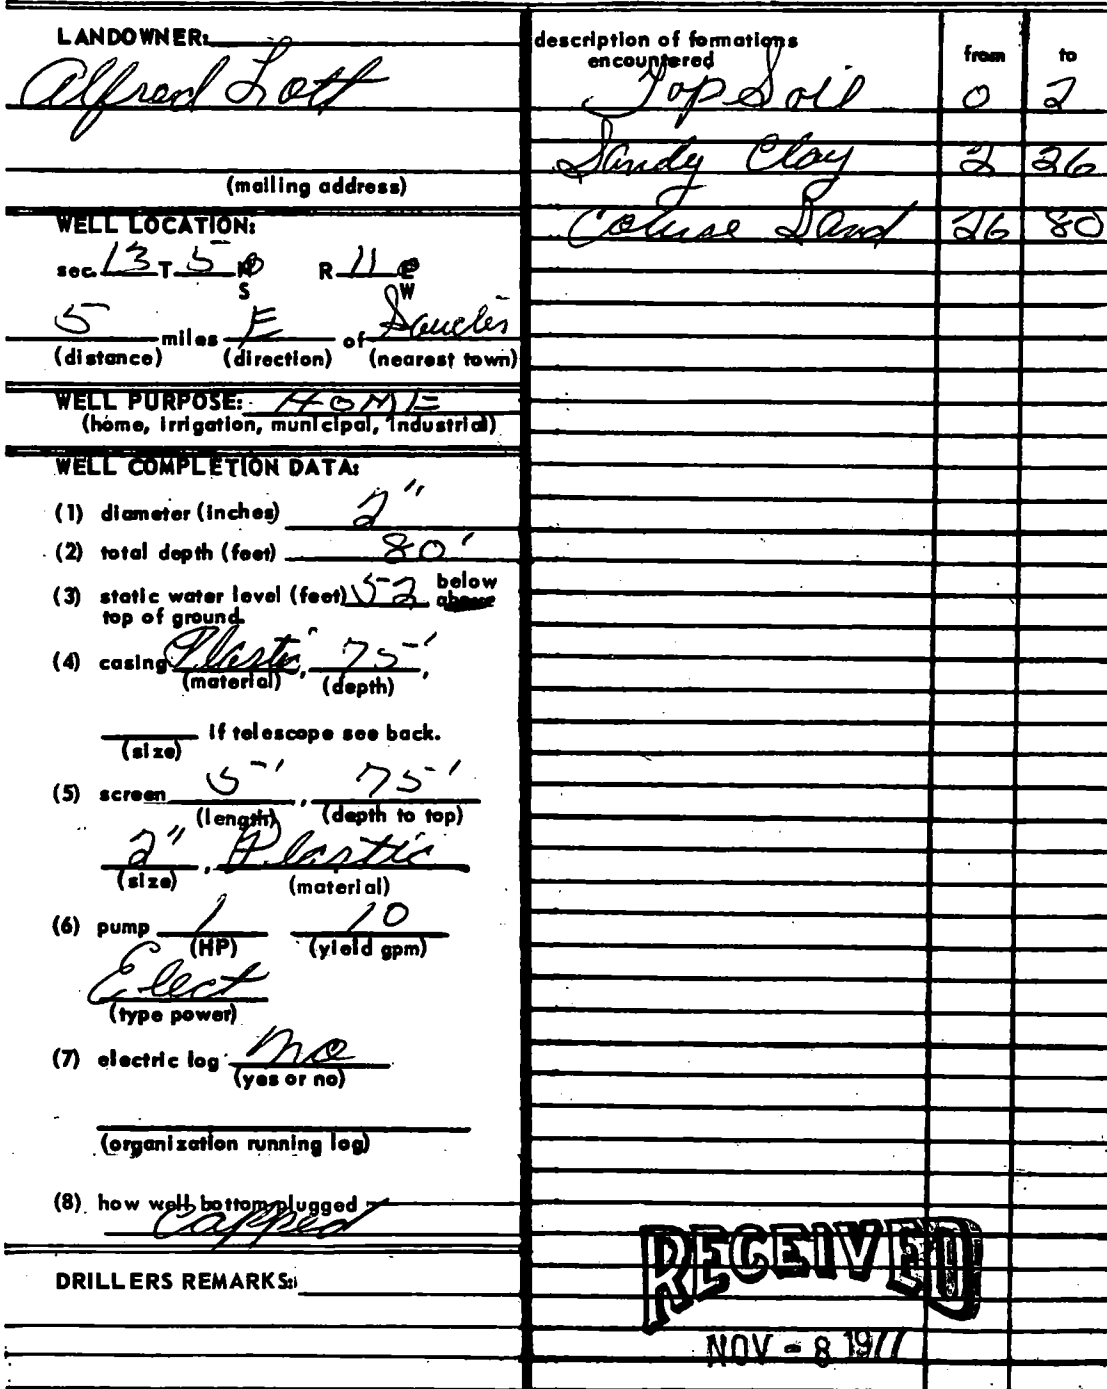 LANDOWNER:
Alfred Lott
(mailing address)
WELL LOCATION:
sec. 13 T 5 N S R 11 E W
5 miles E of Saucier
(distance) (direction) (nearest town)
WELL PURPOSE: HOME
(home, irrigation, municipal, industrial)
WELL COMPLETION DATA:
(1) diameter (inches) 2"
(2) total depth (feet) 80'
(3) static water level (feet) 52 below above
top of ground.
(4) casing Plastic, 75',
(material) (depth)
(size) if telescope see back.
(5) screen 5', 75'
(length) (depth to top)
2", Plastic
(size) (material)
(6) pump 1 10
(HP) (yield gpm)
Elect
(type power)
(7) electric log no
(yes or no)
(organization running log)
(8) how well bottom plugged
Capped
DRILLERS REMARKS:
description of formations
encountered from to
Top Soil 0 2
Sandy Clay 2 26
Course Sand 26 80
RECEIVED
NOV - 8 1977